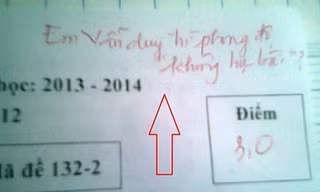 Em Vẫn duy trì phong độ
không hạ
học: 2013 - 2014
12
Điểm
3,0
ã đề 132-2